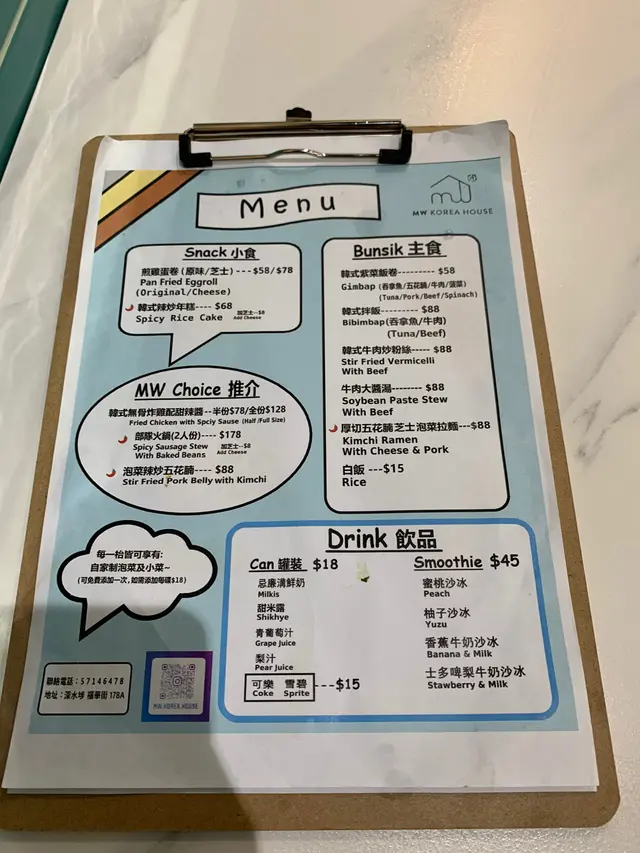 Menu
MW KOREA HOUSE
Snack 小食
煎雞蛋卷 (原味/芝士) ---$58/$78
Pan Fried Eggroll
(Original/Cheese)
韓式辣炒年糕---- $68
Spicy Rice Cake
加芝士--$8
Add Cheese
MW Choice 推介
韓式無骨炸雞配甜辣醬--半份$78/全份$128
Fried Chicken with Spciy Sause (Half /Full Size)
部隊火鍋(2人份)---- $178
Spicy Sausage Stew
With Baked Beans
加芝士--$8
Add Cheese
泡菜辣炒五花腩---- $88
Stir Fried Pork Belly with Kimchi
每一枱皆可享有:
自家制泡菜及小菜~
(可免費添加一次, 如需添加每碟$18)
聯絡電話 : 57146478
地址 : 深水埗 福華街 178A
MW.KOREA.HOUSE
Bunsik 主食
韓式紫菜飯卷--------- $58
Gimbap (吞拿魚/五花腩/牛肉/菠菜)
(Tuna/Pork/Beef/Spinach)
韓式拌飯--------- $88
Bibimbap(吞拿魚/牛肉)
(Tuna/Beef)
韓式牛肉炒粉絲----- $88
Stir Fried Vermicelli
With Beef
牛肉大醬湯-------- $88
Soybean Paste Stew
With Beef
厚切五花腩 芝士 泡菜拉麵---$88
Kimchi Ramen
With Cheese & Pork
白飯 ---$15
Rice
Drink 飲品
Can 罐裝 $18
忌廉溝鮮奶
Milkis
甜米露
Shikhye
青葡萄汁
Grape Juice
梨汁
Pear Juice
可樂 雪碧 ---$15
Coke Sprite
Smoothie $45
蜜桃沙冰
Peach
柚子沙冰
Yuzu
香蕉牛奶沙冰
Banana & Milk
士多啤梨牛奶沙冰
Stawberry & Milk